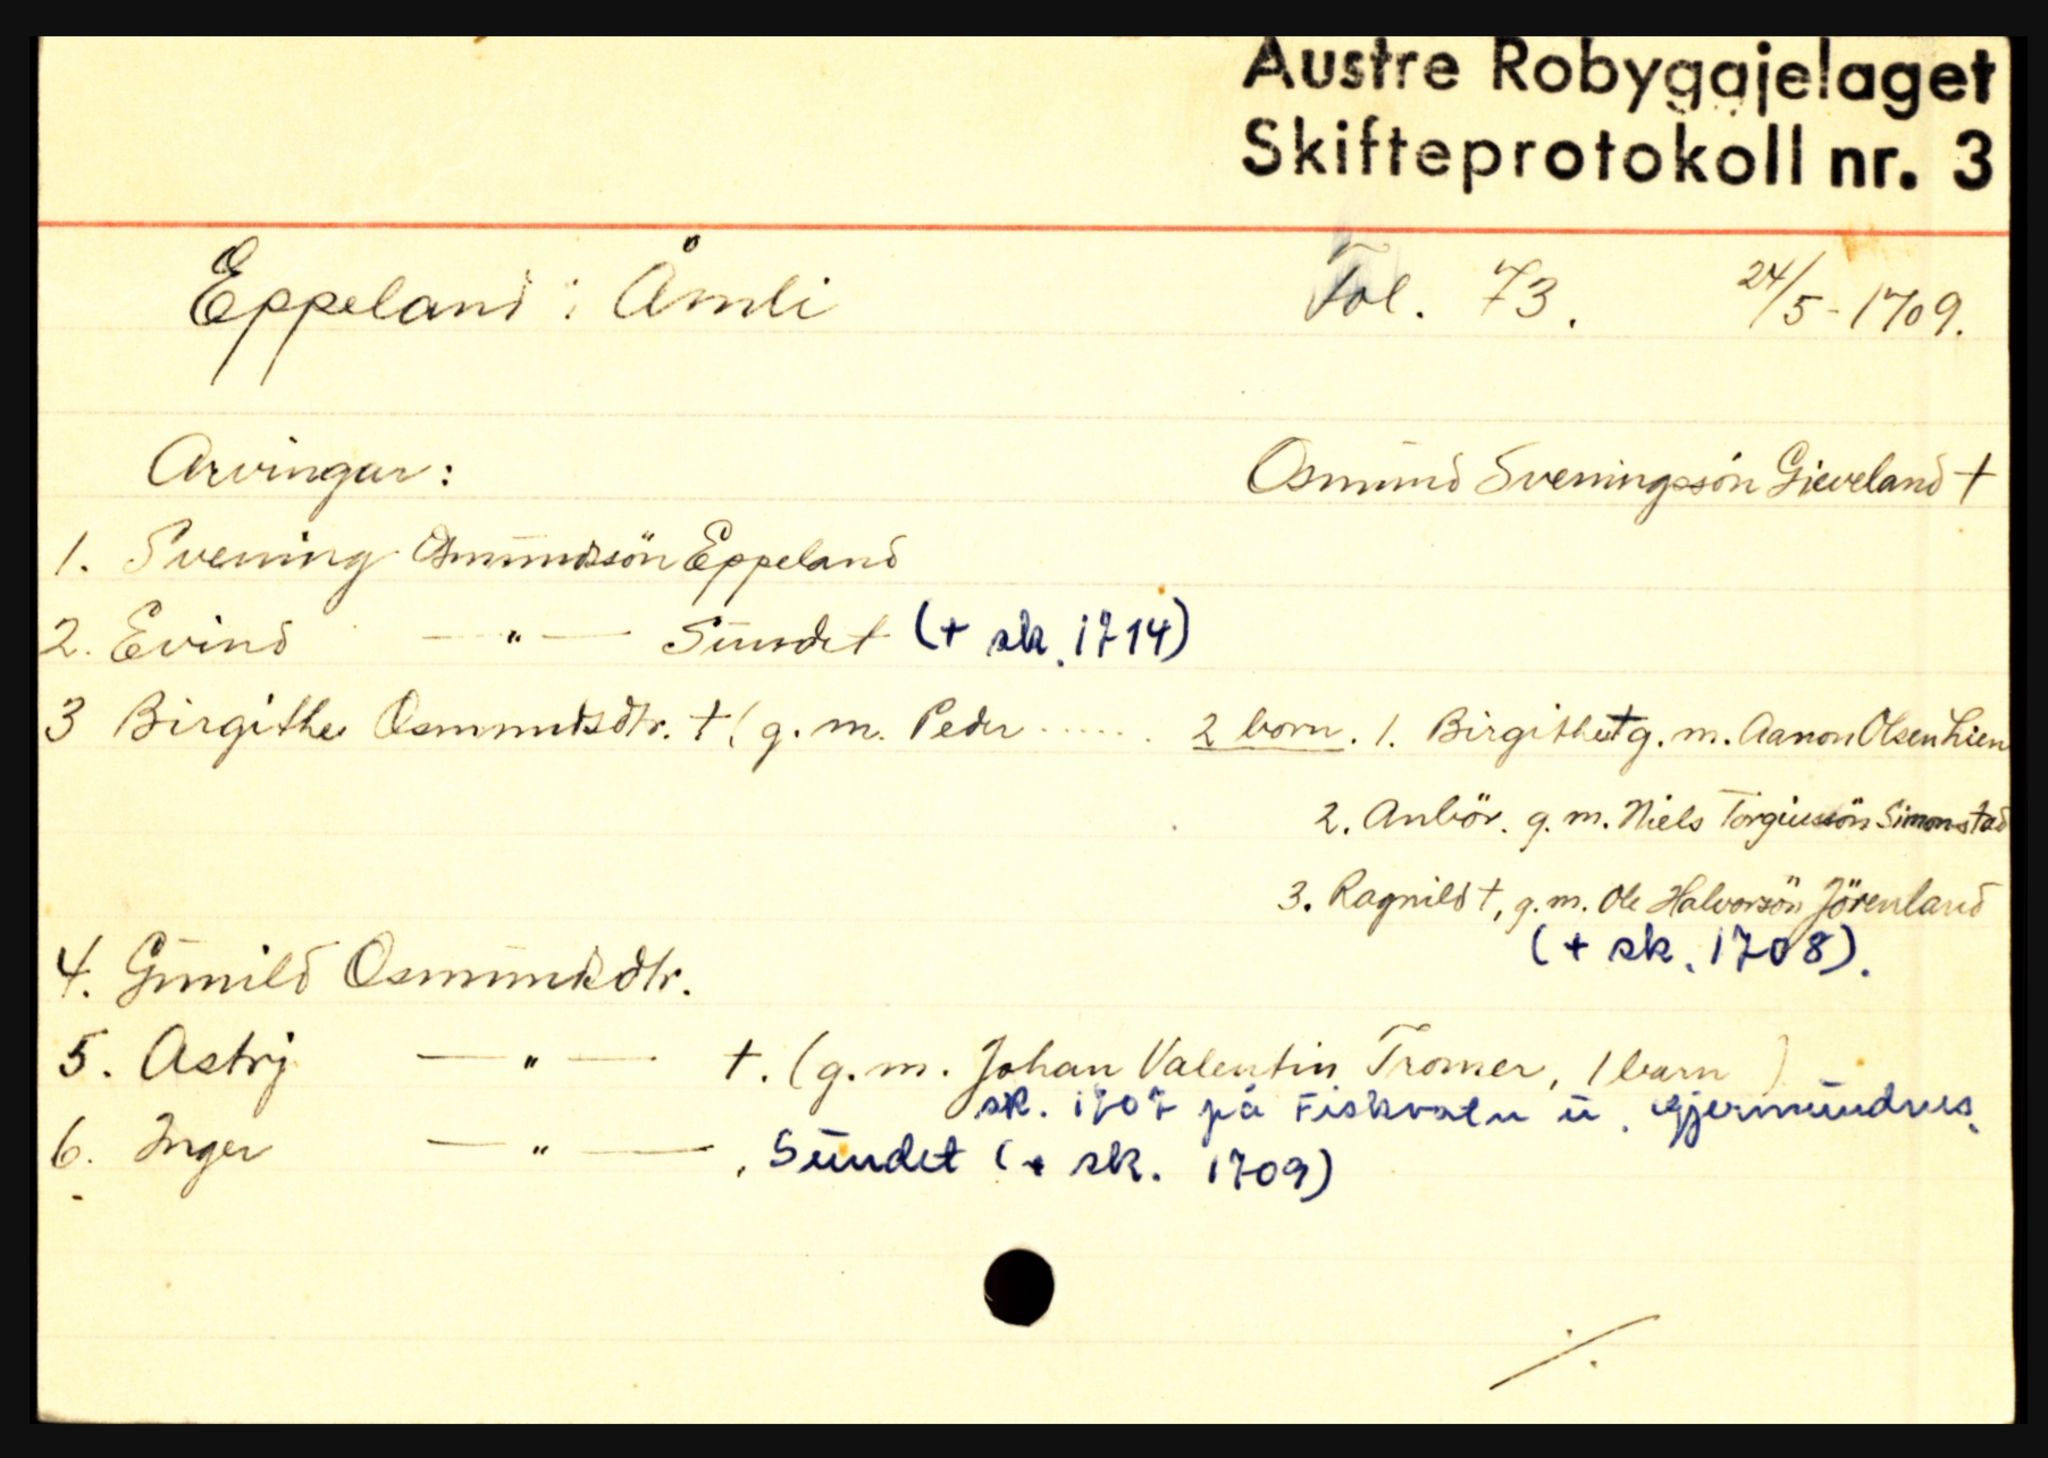 Austre Robygdjelaget
Skifteprotokoll nr. 3
Eppeland i Åmli Fol. 73. 24/5-1709.
Arvingar: Osmund Sveningssön Gieveland †
1. Svening Osmundssön Eppeland
2. Evind — " — Sundet (+ sk. 1714)
3 Birgithe Osmundsdtr. † (g. m. Peder ...... 2 born. 1. Birgithe † g. m. Aanon Olsen Lien
2. Anbör. g. m. Niels Torgiussön Simonstad
3. Ragnild †, g. m. Ole Halvorsön Jörenland
(+ sk. 1708).
4. Gunild Osmundsdtr.
5. Astrj — " — †. (g. m. Johan Valentin Tromer, 1 barn )
sk. 1707 på Fiskvatn u. Gjermundnes.
6. Inger — " — , Sundet (+ sk. 1709)
./.